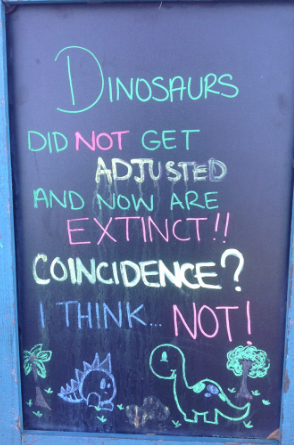 DINOSAURS
DID NOT GET
ADJUSTED
AND NOW ARE
EXTINCT!!
COINCIDENCE?
I THINK... NOT!